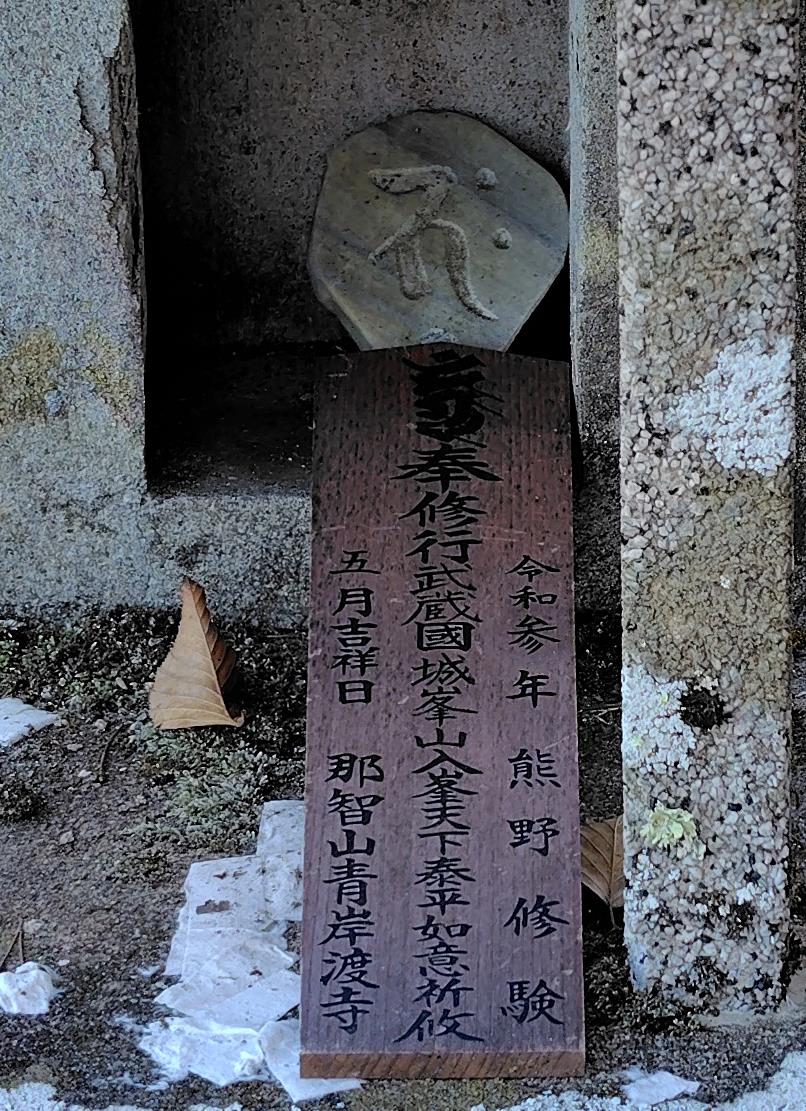 令和参年 熊野修験
奉修行武蔵國城峯山入峯天下泰平如意祈攸
五月吉祥日 那智山青岸渡寺